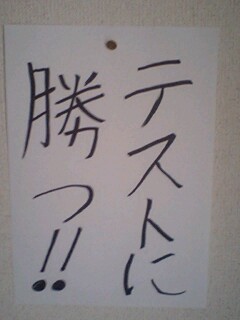 テストに
勝つ!!